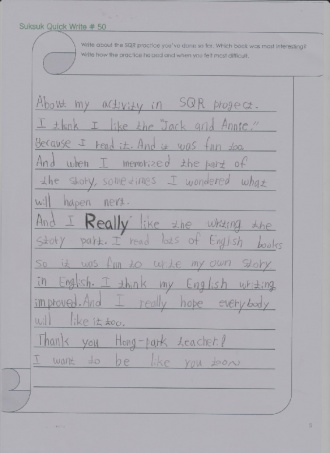 Suksuk Quick Write # 50
Write about the SQR practice you've done so far. Which book was most interesting?
Write how the practice helped and when you felt most difficult.
About my activity in SQR project.
I think I like the "Jack and Annie."
Because I read it. And it was fun too.
And when I memorized the part of
the story, sometimes I wondered what
will happen next.
And I Really like the writing the
story part. I read lots of English books
so it was fun to write my own story
in English. I think my English writing
improved. And I really hope everybody
will like it too.
Thank you Hong-park teacher!
I want to be like you